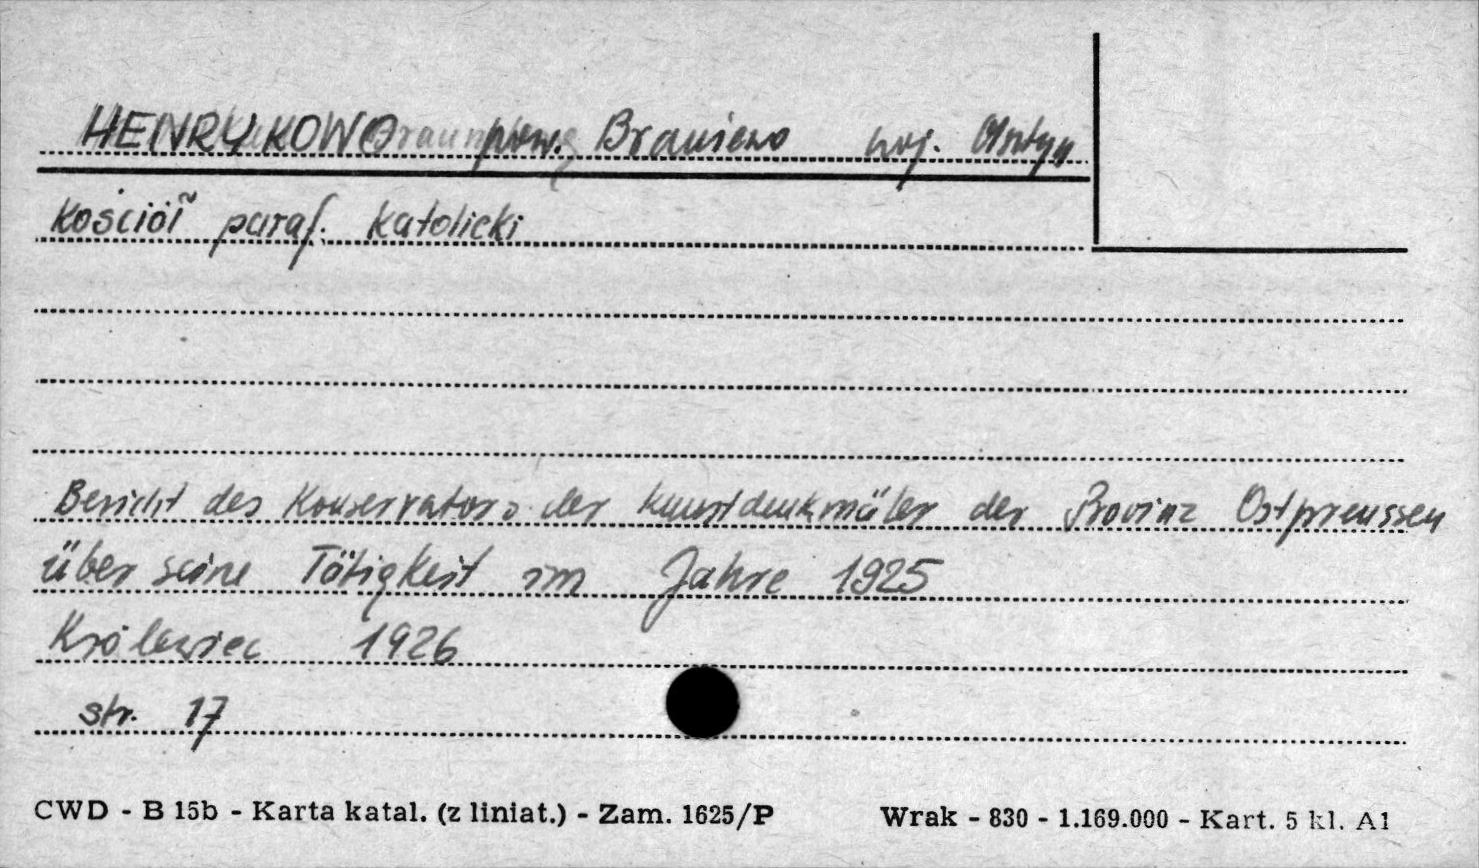 HENRYKOWO pow. Braniewo woj. Olsztyn
kościół paraf. katolicki
Bericht des Konservators der Kunstdenkmäler der Provinz Ostpreussen
über seine Tätigkeit im Jahre 1925
Królewiec 1926
str. 17
CWD - B 15b - Karta katal. (z liniat.) - Zam. 1625/P Wrak - 830 - 1.169.000 - Kart. 5 kl. A1